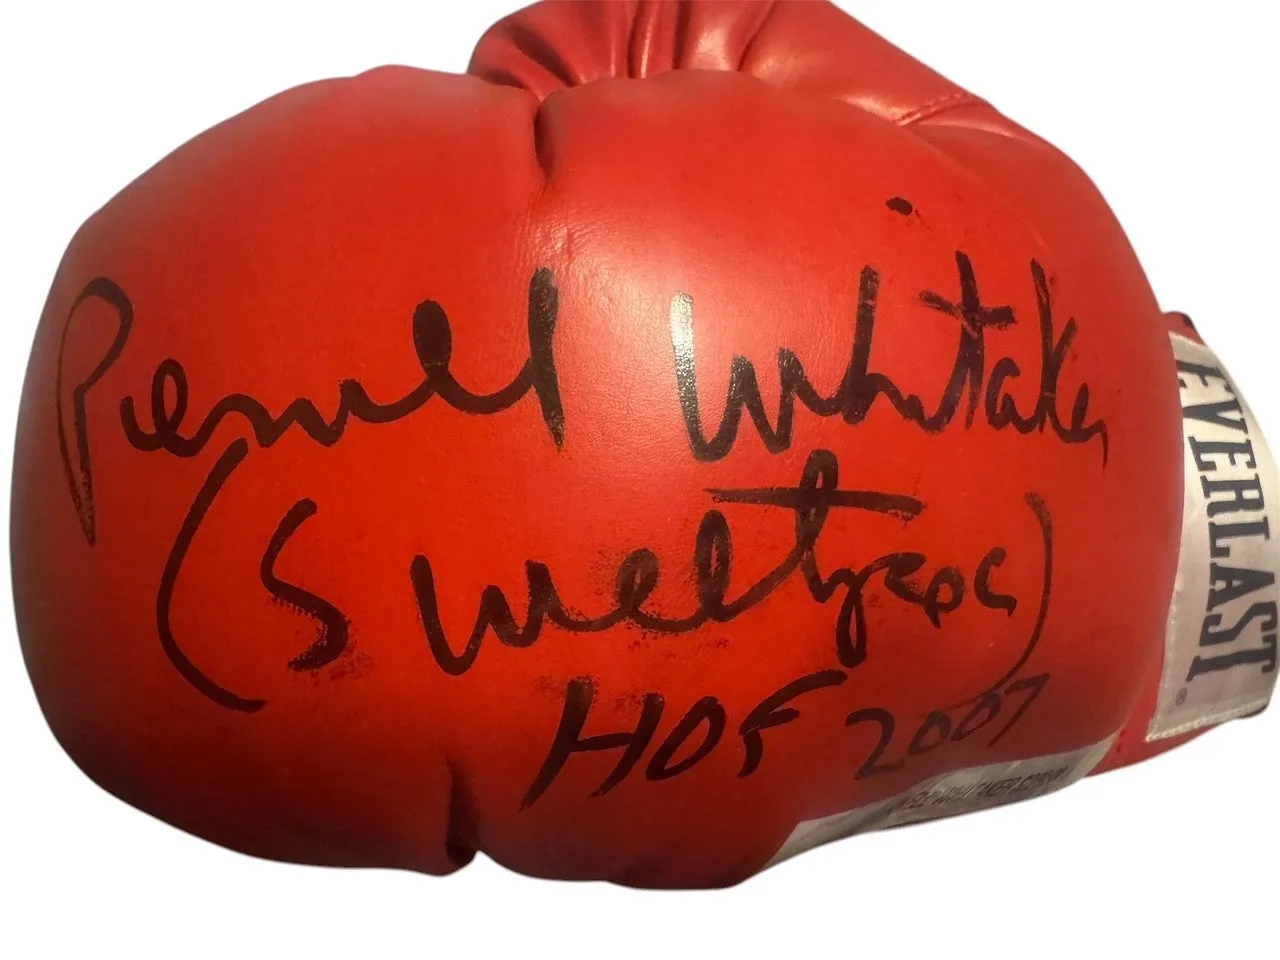 Pernell Whitaker
(Sweetpea)
HOF 2007
EVERLAST®
WHITAKER